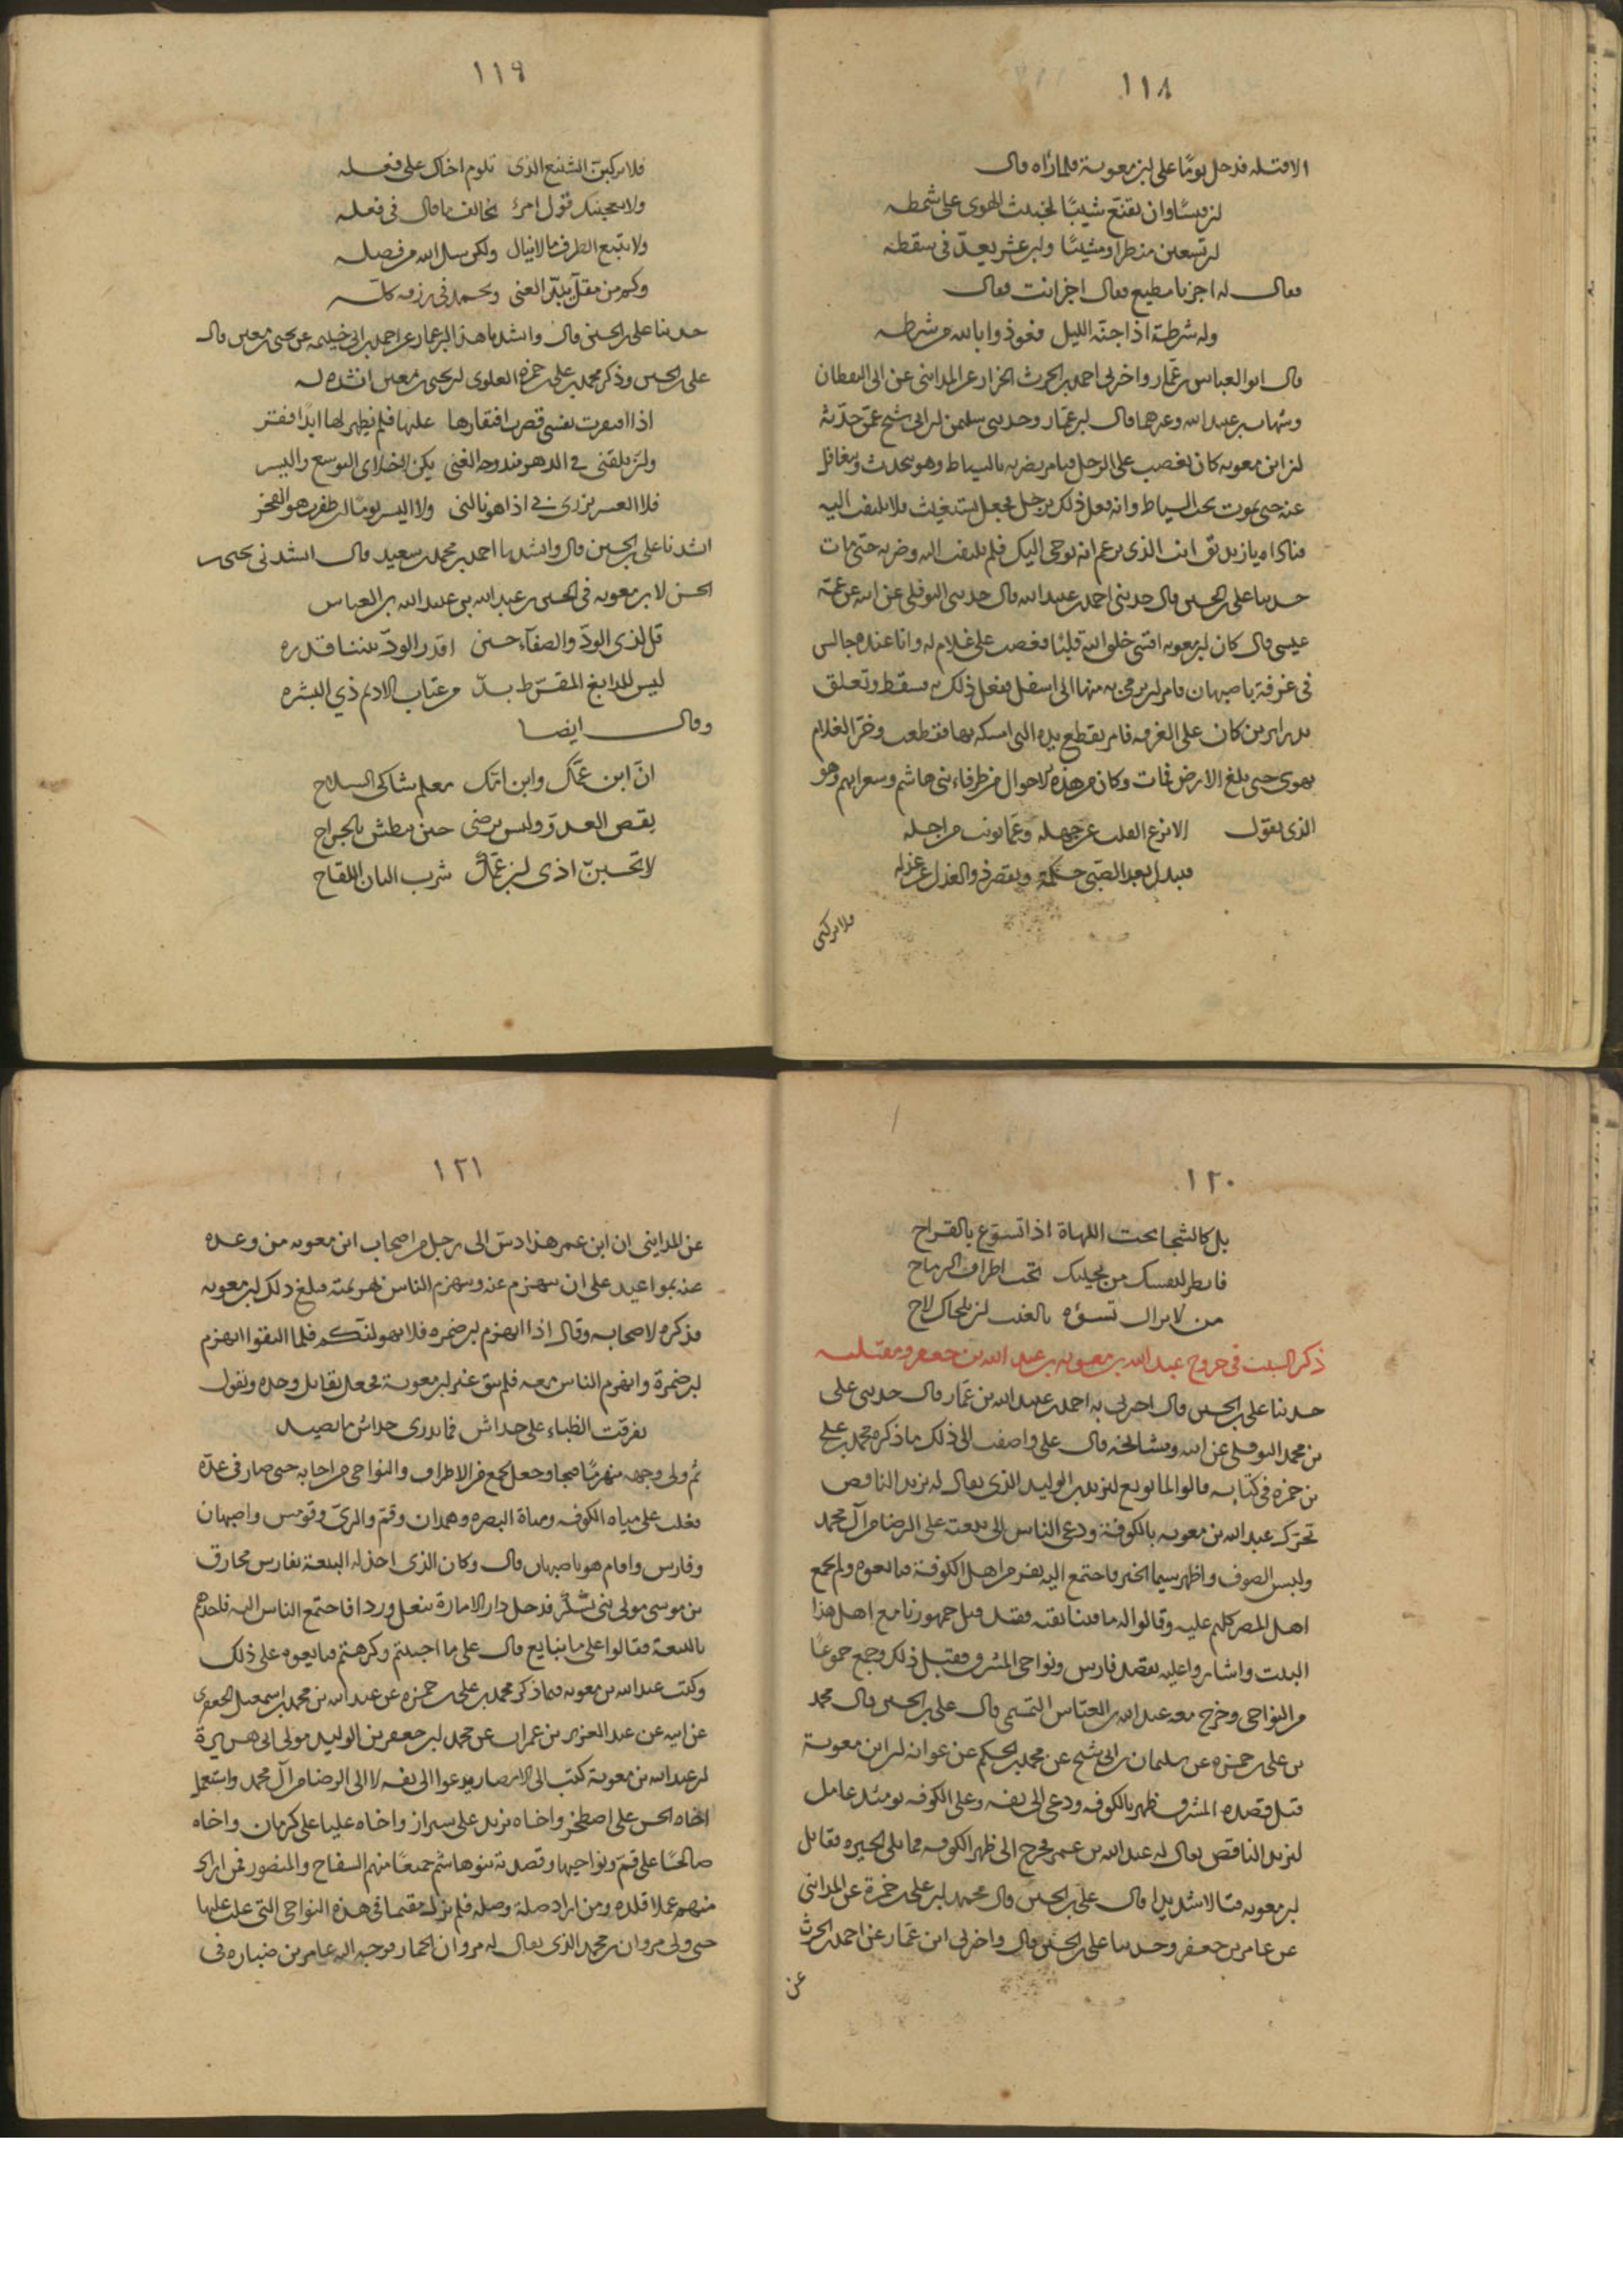 ١١٨
الا قتله فدخل يومًا على ابن معوية فلما رآه قال
ان قيسًا وان تقنع شيبًا لخبيث الهوى على شمطه
ابن تسعين منظرا ومشيبًا وابن عشر يعدّ في سقطه
فقال له اجز يا مطيع فقال اجز انت فقال
وله شرطة اذا جنّه الليل فعوذوا بالله من شرطه
قال ابو العباس بن عمّار واخبرني احمد بن الحرث الخزاز عن المدايني عن ابي اليقظان
وشهاب بن عبد الله وغيرهما قال ابن عمّار وحدثني سليمن بن ابي شيخ عمّن حدّثه
ان ابن معويه كان يغضب على الرجل فيامر بضربه بالسياط وهو يتحدث ويتغافل
عنه حتى يموت تحت السياط وانه فعل ذلك برجل فجعل يستغيث فلا يلتفت اليه
فناداه يا زنديق انت الذى تزعم انه يوحى اليك فلم يلتفت اليه وضربه حتى مات
حدثنا على بن الحسين قال حدثني احمد بن عبيد الله قال حدثني النوفلي عن ابيه عن عمّه
عيسى قال كان ابن معويه اقسى خلق الله قلبًا فغضب على غلام له وانا عنده جالس
في غرفة باصبهان فامر ان يرمى به منها الى اسفل ففعل ذلك به فسقط وتعلق
بدرابزين كان على الغرفه فامر بقطع يده التى امسكه بها فقطعت وخرّ الغلام
يهوى حتى بلغ الارض فمات وكان مع هذه الاحوال من ظرفاء بنى هاشم وشعرايهم وهو
الذى يقول الا تزع القلب عن جهله وعمّا تونب من اجله
فيبدل بعد الصّبى حكمة ويقصر ذو العذل عن عذله
فلا تركبن
١١٩
فلا تركبن الشنيع الذى تلوم اخاك على فعله
ولا يعجبنك قول امرئ يخالف ما قال في فعله
ولا تتبع الطرف ما لا تنال ولكن سل الله من فضله
وكم من مقلّ ينال الغنى ويحمد في رزقه كله
حدثنا على بن الحسين قال وانشدنا هذا ابن عمار عن احمد بن ابى خيثمه عن يحيى بن معين قال
على بن الحسين وذكر محمد بن على بن حمزه العلوى ان يحيى بن معين انشده له
اذا افتقرت نفسى قصرت افتقارها عليها فلم يظهر لها ابدًا فقر
وان تلقنى في الدهر مندوحة الغنى يكن لاخلاى التوسع واليسر
فلا العسر يزرى بى اذا هو نالنى ولا اليسر يومًا ان ظفرت هو الفخر
انشدنا على بن الحسين قال وانشدنا احمد بن محمد بن سعيد قال انشدنى يحيى بن
الحسن لابن معويه في الحسين بن عبد الله بن عبيد الله بن العباس
قل لذى الودّ والصفآء حسين اقدر الودّ بيننا قدره
ليس للدابغ المقرّظ بدّ من عتاب الاديم ذي البشره
وقال ايضا
انّ ابن عمّك وابن امّك معلم شاكى السلاح
يقص العدوّ وليس يرضى حين يبطش بالجراح
لا تحسبنّ اذى ابن عمّك شرب البان اللقاح
١٢٠
بل كالشجا تحت اللهاة اذا تسوّغ بالقراح
فانظر لنفسك من يجيبك تحت اطراف الرماح
من لا يزال تسؤه بالغيب ان يلحاك لاح
ذكر السبب في خروج عبد الله بن معويه بن عبد الله بن جعفر ومقتله
حدثنا على بن الحسين قال اخبرنى به احمد بن عبيد الله بن عمّار قال حدثنى على
بن محمد النوفلى عن ابيه ومشايخه قال على واضفت الى ذلك ما ذكره محمد بن على
بن حمزه في كتابه قالوا لما بويع ليزيد بن الوليد الذى يقال له يزيد الناقص
تحرّك عبد الله بن معويه بالكوفة ودعى الناس الى بيعته على الرضا من آل محمد
ولبس الصوف واظهر سيما الخير فاجتمع اليه نفر من اهل الكوفة فبايعوه ولم يجمع
اهل المصر كلهم عليه وقالوا له ما فينا بقيه فقد قتل جمهورنا مع اهل هذا
البيت واشاروا عليه بقصد فارس ونواحى المشرق فقبل ذلك وجمع جموعًا
من النواحى وخرج معه عبد الله بن العبّاس التميمى قال على بن الحسين قال محمد
بن على بن حمزه عن سليمان بن ابى شيخ عن محمد بن الحكم عن عوانه ان ابن معوية
قبل قصده المشرق ظهر بالكوفه ودعى الى نفسه وعلى الكوفه يومئذ عامل
ليزيد الناقص يقال له عبد الله بن عمر فخرج الى ظهر الكوفه مما يلى الحيره فقاتل
ابن معويه قتالا شديدا قال على بن الحسين قال محمد بن على بن حمزة عن المداينى
عن عامر بن حفص وحدثنا على بن الحسين قال واخبرنى ابن عمّار عن احمد بن الحرث
عن
١٢١
عن المداينى ان ابن عمر هذا دسّ الى رجل من اصحاب ابن معويه من وعده
عنه بمواعيد على ان ينهزم عنه وينهزم الناس بهزيمته فبلغ ذلك ابن معويه
فذكره لاصحابه وقال اذا انهزم ابن ضمره فلا يهولنّكم فلما التقوا انهزم
ابن ضمرة وانهزم الناس معه فلم يبق غير ابن معوية فجعل يقاتل وحده ويقول
تفرقت الظباء على خداش فما يدرى خداش ما يصيد
ثم ولى وجهه منهزمًا فنجا وجعل يجمع من الاطراف والنواحى من اجابه حتى صار في عدّة
فغلب على مياه الكوفه ومياه البصره وهمدان وقمّ والرىّ وقومس واصبهان
وفارس واقام هو باصبهان قال وكان الذى اخذ له البيعة بفارس محارق
بن موسى مولى بنى يشكر فدخل دار الامارة بنعل وردا فاجتمع الناس اليه فاخذهم
بالبيعة فقالوا على ما نبايع فقال على ما احببتم وكرهتم فبايعوه على ذلك
وكتب عبد الله بن معويه فيما ذكر محمد بن على بن حمزه عن عبد الله بن محمد بن اسمعيل الجعفرى
عن ابيه عن عبد العزيز بن عمران عن محمد بن جعفر بن الوليد مولى ابى هريرة
ان عبد الله بن معوية كتب الى الامصار يدعوا الى نفسه لا الى الرضا من آل محمد واستعمل
اخاه الحسن على اصطخر واخاه يزيد على شيراز واخاه عليا على كرمان واخاه
صالحًا على قمّ ونواحيها وقصدته بنو هاشم جميعًا منهم السفاح والمنصور فمن اراد
منهم عملا قلده ومن اراد صلة وصله فلم يزل مقيما في هذه النواحى التى غلب عليها
حتى ولى مروان بن محمد الذى يقال له مروان الحمار فوجه اليه عامر بن ضباره في